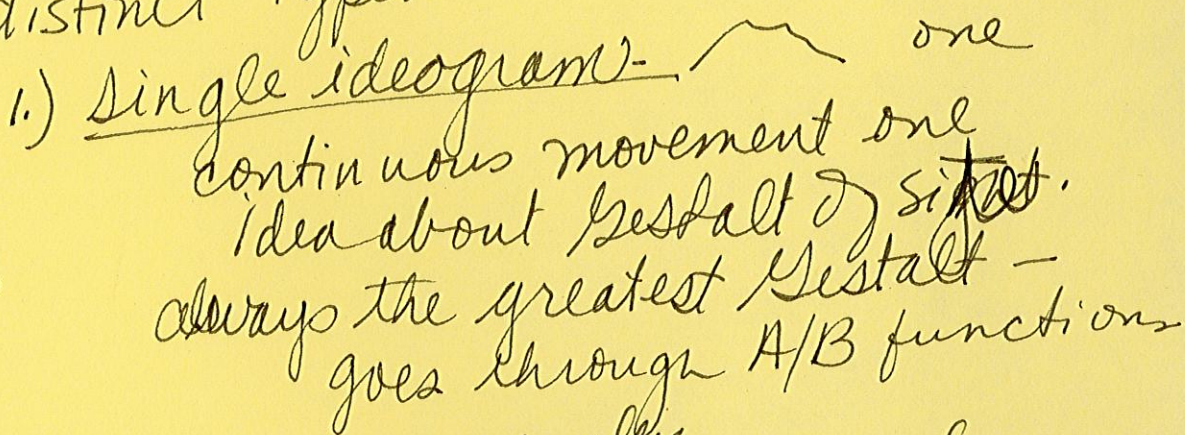 distinct types
1.) Single ideogram - one
continuous movement one
idea about Gestalt of site.
always the greatest Gestalt —
goes through A/B functions